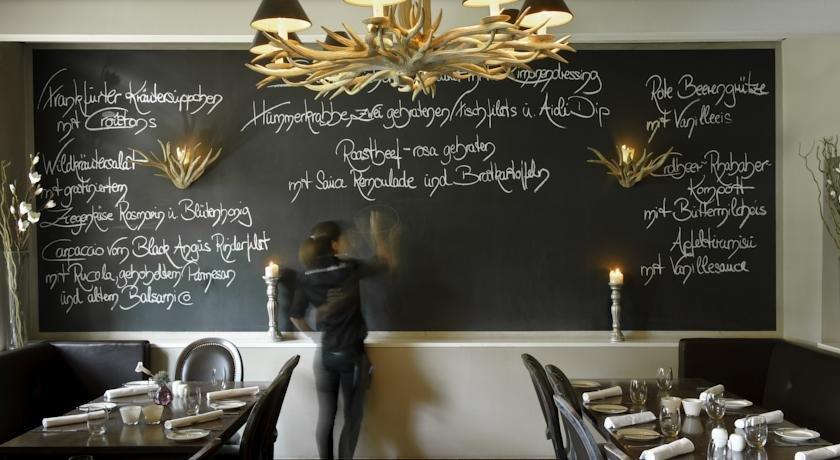 Frankfurter Kräutersüppchen
mit Croûtons
Wildkräutersalat
mit gratiniertem
Ziegenkäse Rosmarin u. Blütenhonig
Carpaccio vom Black Angus Rinderfilet
mit Rucola, gehobeltem Parmesan
und altem Balsamico
mit Limonendressing
Hummerkrabbe, zwei gebratenen Fischfilets u. Aioli Dip
Roastbeef - rosa gebraten
mit Sauce Remoulade und Bratkartoffeln
Rote Beerengrütze
mit Vanilleeis
Erdbeer-Rhabarber-
Kompott
mit Buttermilcheis
Apfeltiramisu
mit Vanillesauce